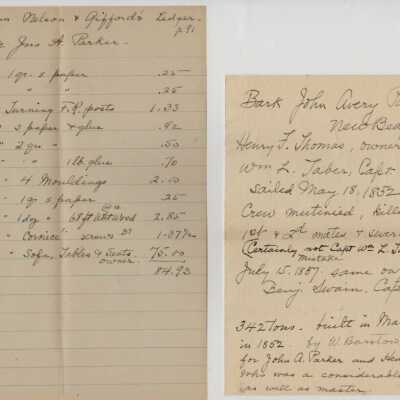 Nelson & Gifford's Ledger.
p 91
Jno A. Parker.
1 qr. s paper .25
" " " .25
Turning F.R. posts 1.33
" s paper & glue .92
" 2 qrs " .50
" " " 1 lb glue .70
" 4 Mouldings 2.00
" 1 qr s paper .25
" 1 dg " 68 ft @10 wood 2.85
" Cornice screws
" Sofa, Tables & Seats 75.00
owner.
84.92
Bark John Avery Pa
New Be
Henry F. Thomas, owner
Wm L. Taber, Capt
sailed May 18, 1852
Crew mutinied, kille
1st & 2d mates &
(Certainly not Capt Wm L. T
mistake
July 15. 1857. same ow
Benj. Swain, Cap
342 tons. built in Ma
in 1852. by W. Barstow
for John A. Parker and Hen
who was a considerabl
as well as master.